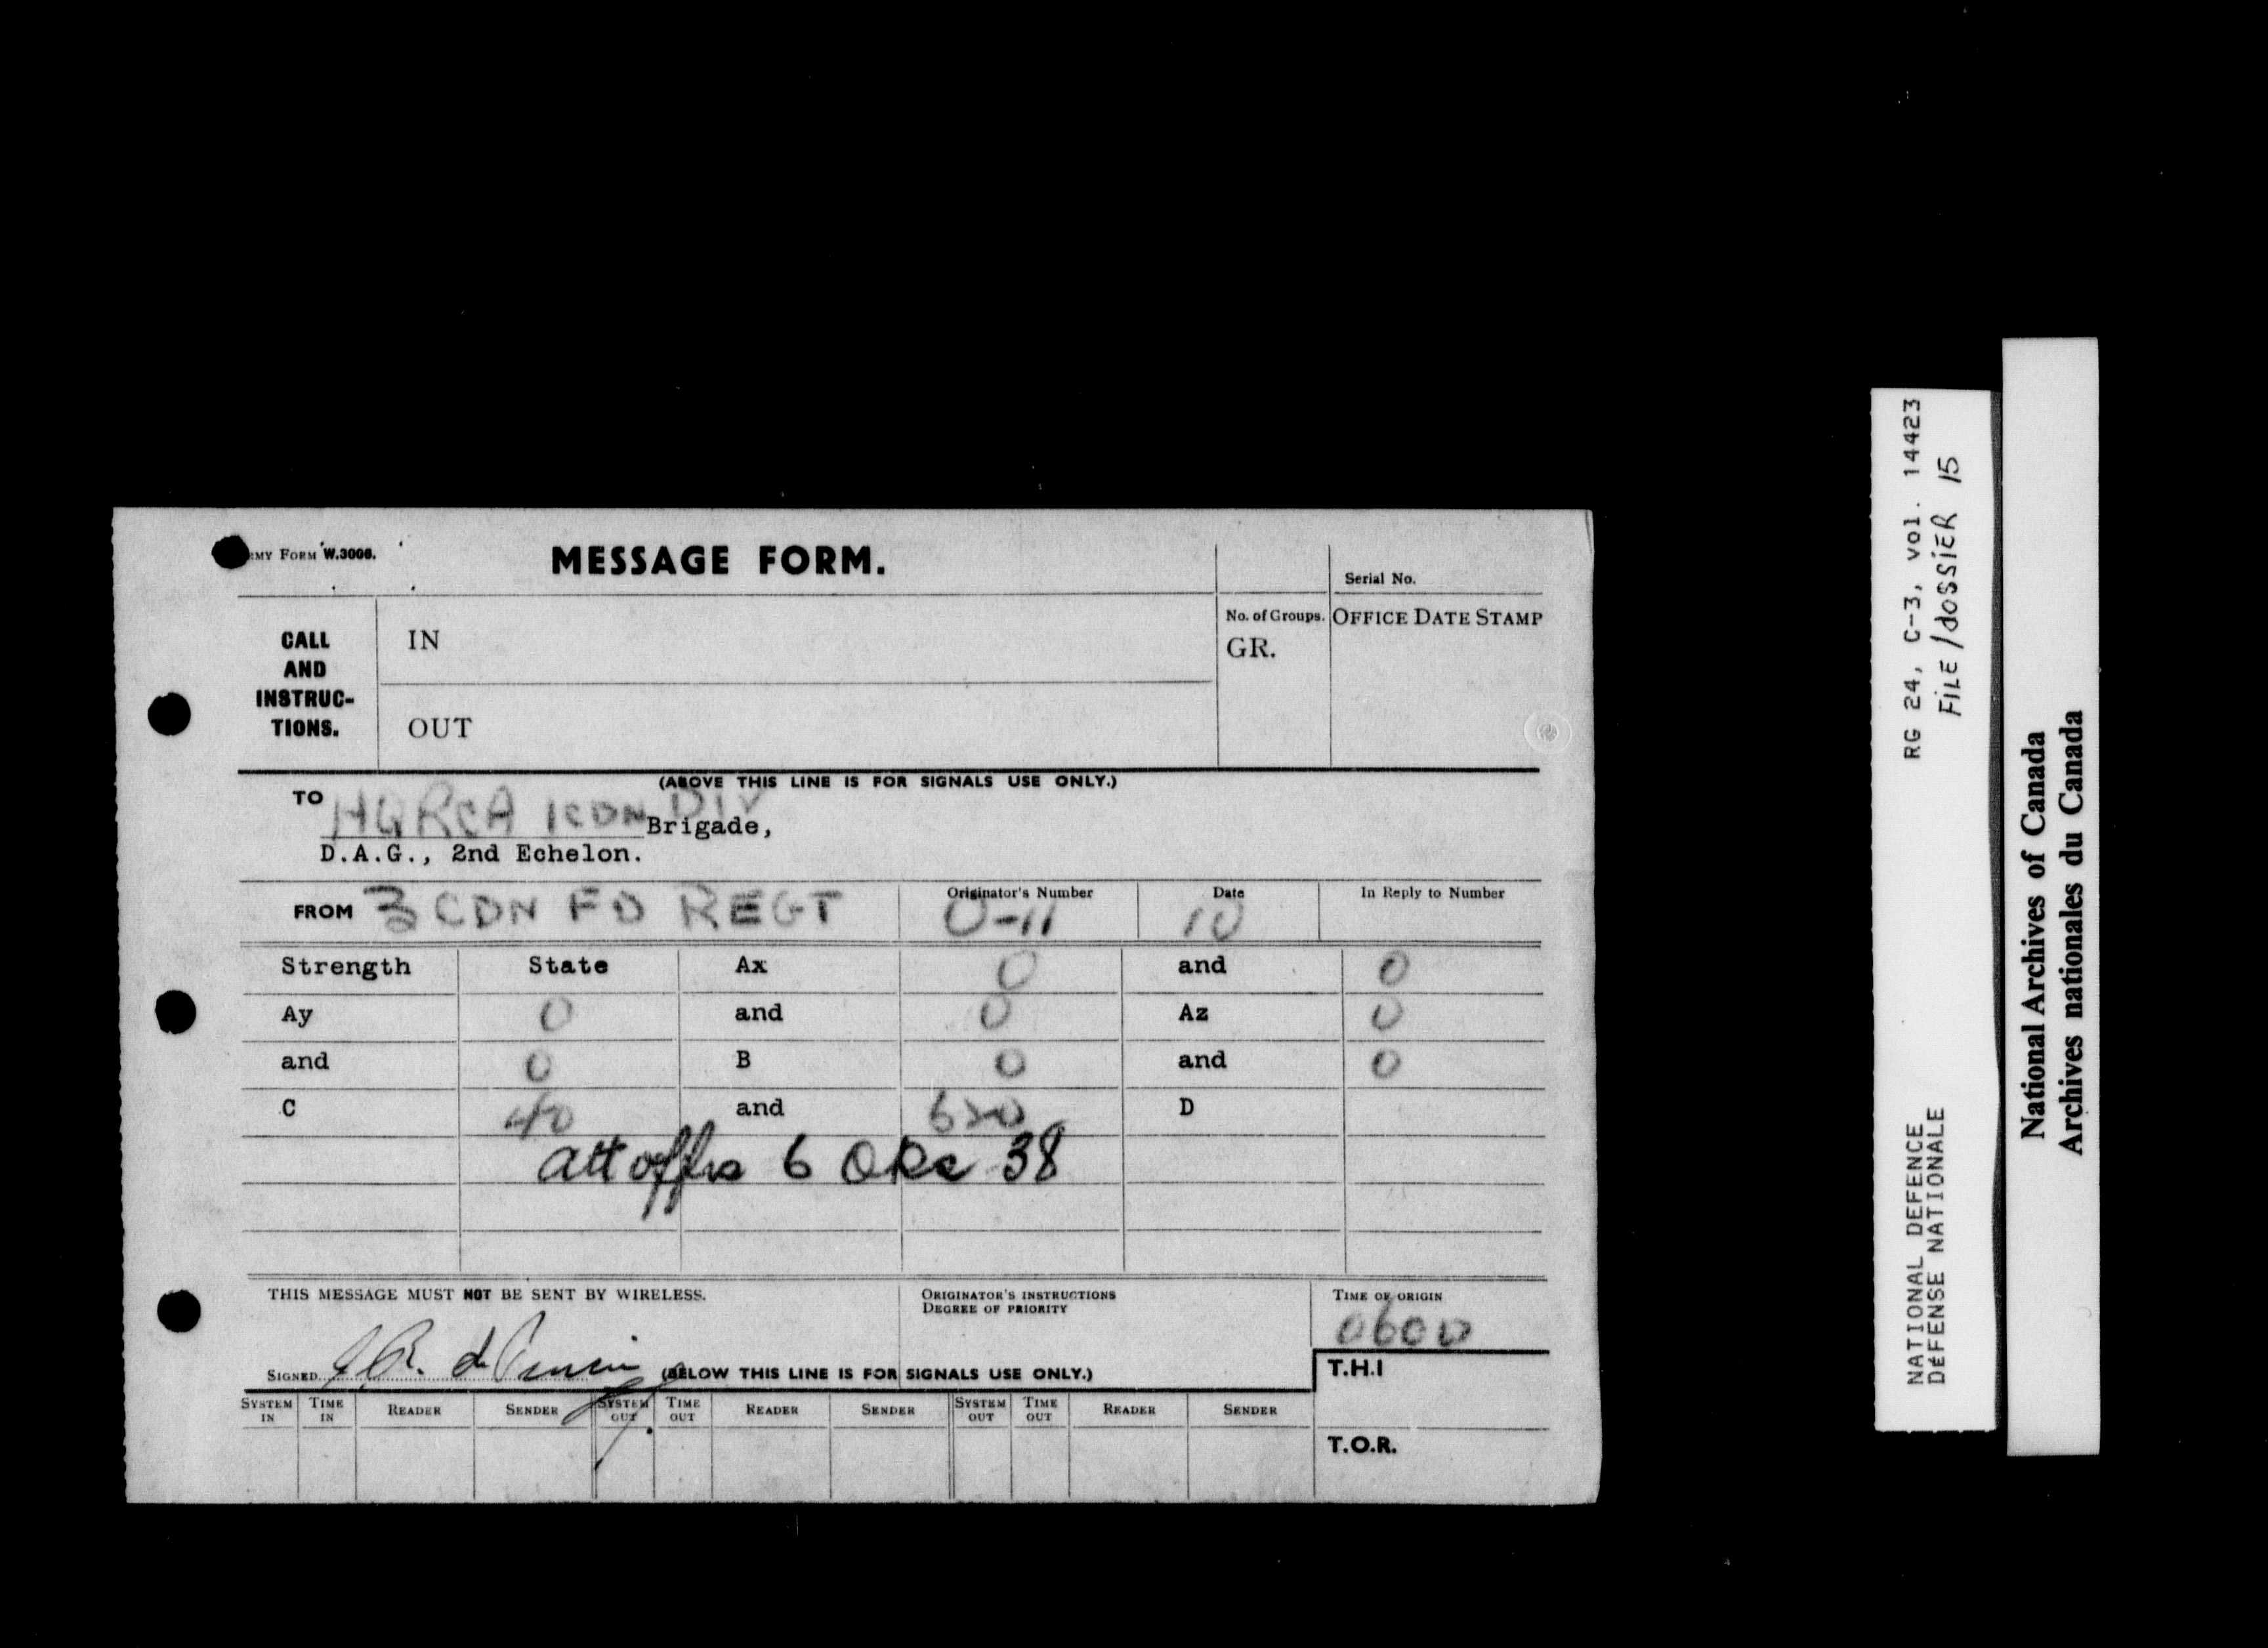 ARMY FORM W.3006.
MESSAGE FORM.
Serial No.
CALL AND INSTRUC-TIONS.
IN
No. of Groups.
GR.
OFFICE DATE STAMP
OUT
(ABOVE THIS LINE IS FOR SIGNALS USE ONLY.)
TO HQ RCA 1 CDN DIV
Brigade,
D.A.G., 2nd Echelon.
FROM 3 CDN FD REGT
Originator's Number O-11
Date 10
In Reply to Number
Strength State Ax 0 and 0
Ay 0 and 0 Az 0
and 0 B 0 and 0
C 40 and 620 D
att offrs 6 ORs 38
THIS MESSAGE MUST NOT BE SENT BY WIRELESS.
ORIGINATOR'S INSTRUCTIONS
DEGREE OF PRIORITY
TIME OF ORIGIN
0600
SIGNED
(BELOW THIS LINE IS FOR SIGNALS USE ONLY.)
T.H.I
SYSTEM IN TIME IN READER SENDER SYSTEM OUT TIME OUT READER SENDER SYSTEM OUT TIME OUT READER SENDER
T.O.R.
RG 24, C-3, vol. 14423
FILE/dOSSIER 15
NATIONAL DEFENCE
DéFENSE NATIONALE
National Archives of Canada
Archives nationales du Canada